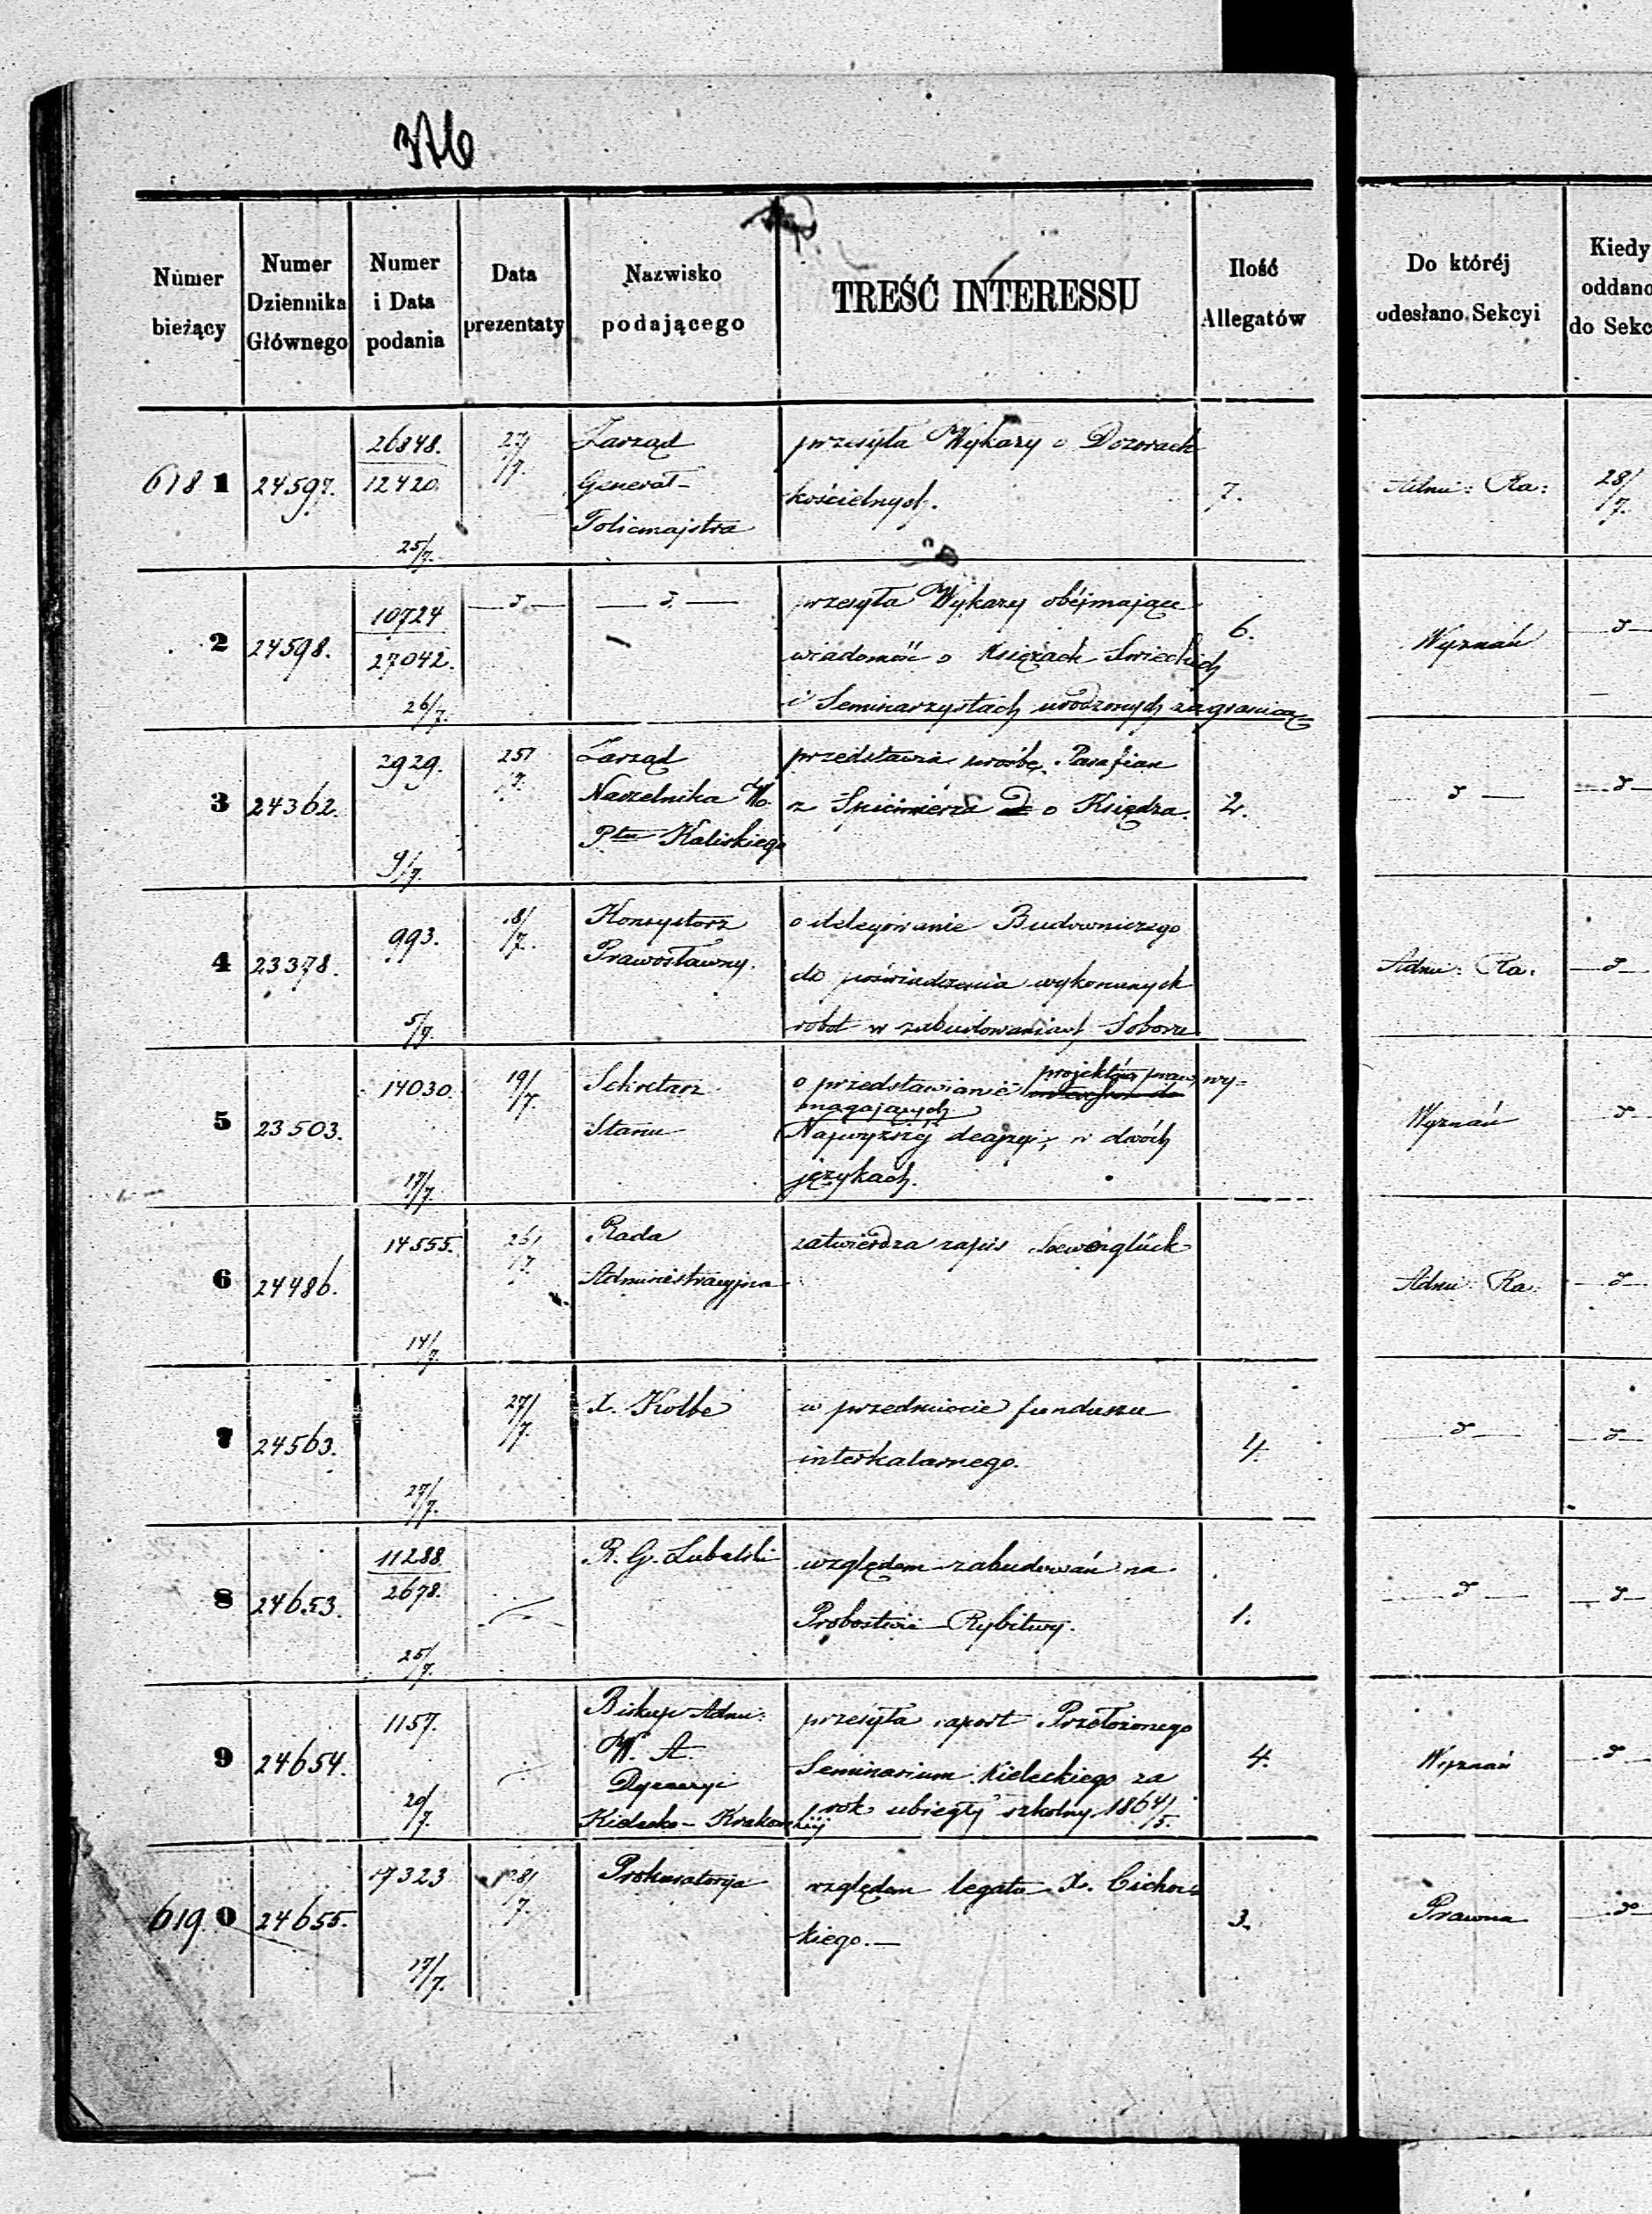 376
Numer bieżący
Numer Dziennika Głównego
Numer i Data podania
Data prezentaty
Nazwisko podającego
TREŚĆ INTERESSU
Ilość Allegatów
Do któréj odesłano Sekcyi
Kiedy oddano do Sekc
618 1 24597. 26848. 12420. 25/7. 27/7. Zarząd
Generał-
Policmajstra
przesyła Wykazy o Dozorach
kościelnych.
7.
Admi: Ra: 28/7.
2 24598. 10724 27042. 26/7. — d. — — d. —
przesyła Wykazy obéjmujące
wiadomość o Księżach Świeckich
i Seminarzystach urodzonych zagranicą
6.
Wyznań — d —
3 24362. 2929. 9/7. 25/7. Zarząd
Naczelnika Wo.
Ptu Kaliskiego
przedstawia prośbę Parafian
z Spicimierza o Księdza.
2.
— d — — d —
4 23378. 993. 5/7. 18/7. Konsystorz
Prawosławny.
o delegowanie Budowniczego
do poświadczenia wykonanych
robót w zabudowaniach Soboru
Admi: Ra: — d —
5 23503. 14030. 17/7. 19/7. Sekretarz
Stanu
o przedstawianie projektów praw, wy=
magających
Najwyższéj decyzyi, w dwóch
językach.
Wyznań — d —
6 24486. 14555. 14/7. 26/7. Rada
Administracyjna
zatwierdza zapis
Admi: Ra: — d —
7 24563. 27/7. 27/7. X. Kolbe
w przedmiocie funduszu
interkalarnego.
4.
— d — — d —
8 24653. 11288. 2678. 25/7. R. G. Lubelski
względem zabudowań na
Probostwie Rybitwy.
1.
— d — — d —
9 24654. 1157. 20/7. Biskup Admi:
W. A.
Dyecezyi
Kielecko-Krakowskiéj
przesyła raport Przełożonego
Seminarium Kieleckiego za
rok ubiegły szkolny 1864/5.
4.
Wyznań — d —
619 0 24655. 17323 17/7. 28/7. Prokuratorya
względem legatu X. Cichoc-
kiego. —
3.
Prawna — do —